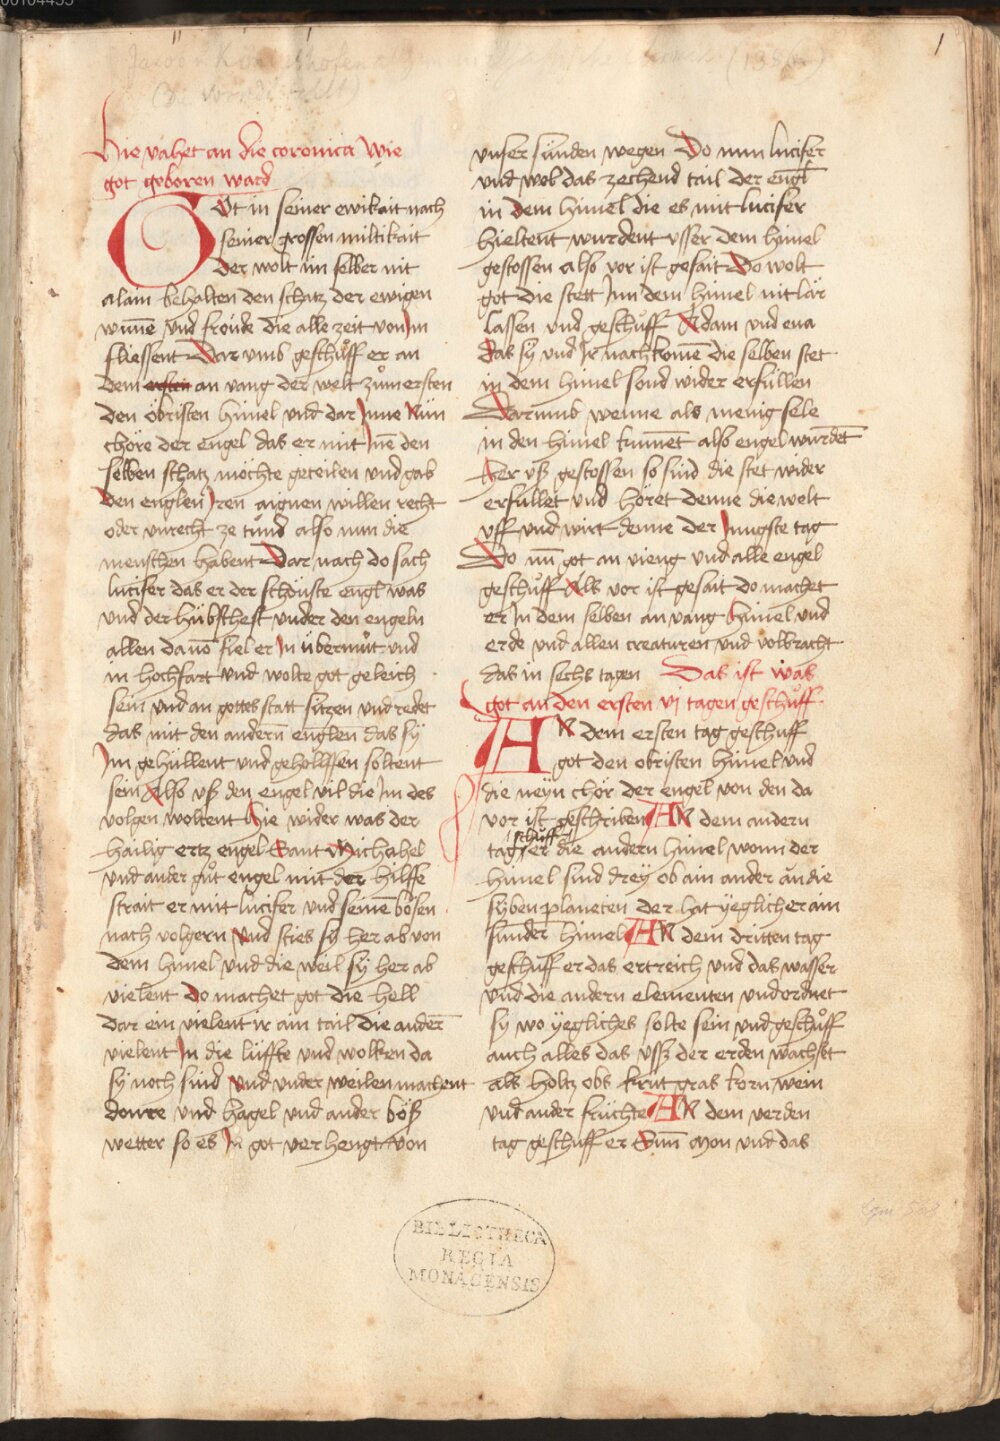 1
Hie vahet an die coronica wie
got geboren ward
GOt in seiner ewikait nach
seiner grossen miltikait
Der wolt im selber nit
alain behalten den schatz der ewigen
wunne˜ und froͤude die alle zeit von Im
fliessent Dar umb geschuͦff er an
dem ersten an vang der welt zuͦm ersten
den öbristen himel und dar Inne Nün
chöre der engel das er mit Ine˜ den
selben schatz möchte geteilen und gab
Den englen Iren aignen willen recht
oder unrecht ze tuͦnd also nun die
menschen habent Dar nach do sach
lucifer das er der schönste engl was
und der hübschest under den engeln
allen dauo˜ fiel er In übermuͦt und
in hochfart und wolte got geleich
sein und an gottes statt sitzen und redet
das mit den andern englen das sÿ
Im gehüllent und gehollffen soltent
sein Also vß den engel vil die Im des
volgen woltent Hie wider was der
hailig ertz engel Sant Michahel
und ander guͦt engel mit der hilffe
strait er mit lucifer und seine˜ bösen
nach volgern Und sties sÿ her ab von
dem himel und die weil sÿ her ab
vielent Do machet got die hell
Dar ein vielent ir ain tail die ander˜
vielent In die lüffte und wolken da
sÿ noch sind Und under weilen machent
donre und hagel und ander böß
wetter so es In got verhengt von
unser sünden wegen Do nun lucifer
und wol das zechend tail der engl
in dem himel die es mit lucifer
hieltent wurdent usser dem himel
gestossen also vor ist gesait Do wolt
got die stett Inn dem himel nit lär
lassen und geschuͦff Adam und eua
Das sÿ und Ir nachkome˜ die selben stet
in dem himel sond wider erfüllen
Darumb wenne als menig sele
in den himel kumet also engel wurdet˜
Her uß gestossen so sind die stet wider
erfüllet und höret denne die welt
uff und wirt denne der Jungste tag
Do nu˜ got an vieng und alle engel
geschuͦff Als vor ist gesait do machet
er In dem selben an vang Himel und
erde und allen creaturen und volbracht
das in sechs tagen Das ist was
got an den ersten vj tagen geschuͦff
AN dem ersten tag geschuff
got den obristen himel und
die neÿn chör der engel von den da
vor ist geschriben AN dem andern
tag schuͦff er die andern himel wonn der
himel sind dreÿ ob ain ander an die
sÿben planeten der hat ÿeglicher ain
sunder himel AN dem dritten tag
geschuff er das ertreich und das wasser
und die andern elementen und ordnet
sÿ wo ÿegliches solte sein und geschuͦff
auch alles das ussz der erden wachset
als holtz obs krut gras korn wein
und ander früchte AN dem verden
tag geschuff er Sun˜ Mon und das
BIBLIOTHECA
REGIA
MONACENSIS